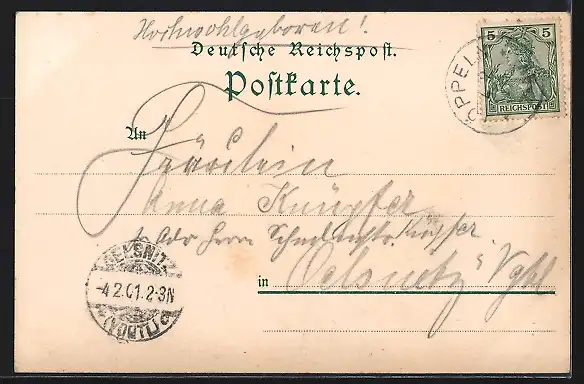 Hochwohlgeboren!
Deutsche Reichspost.
Postkarte.
5 5
REICHSPOST
ÖPPEL
An Fräulein
Anna Knüpfer
Adr. Herrn Knüpfer
in Oelsnitz Vgtl
OELSNITZ
-4.2.01.2-3N
(VOGTL.)